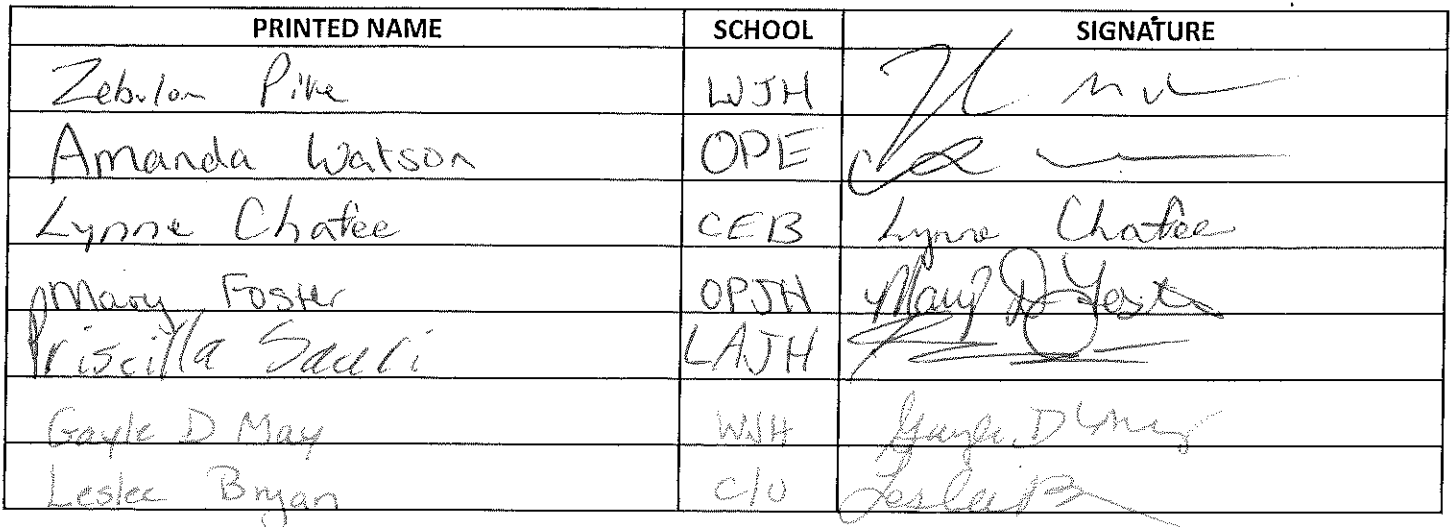 PRINTED NAME SCHOOL SIGNATURE
Zebulon Pike WJH
Amanda Watson OPE
Lynne Chafee CEB Lynne Chafee
Mary Foster OPJH Mary D Foster
Priscilla LAJH
Gayle D May WJH Gayle D May
Leslee Bryan C/O